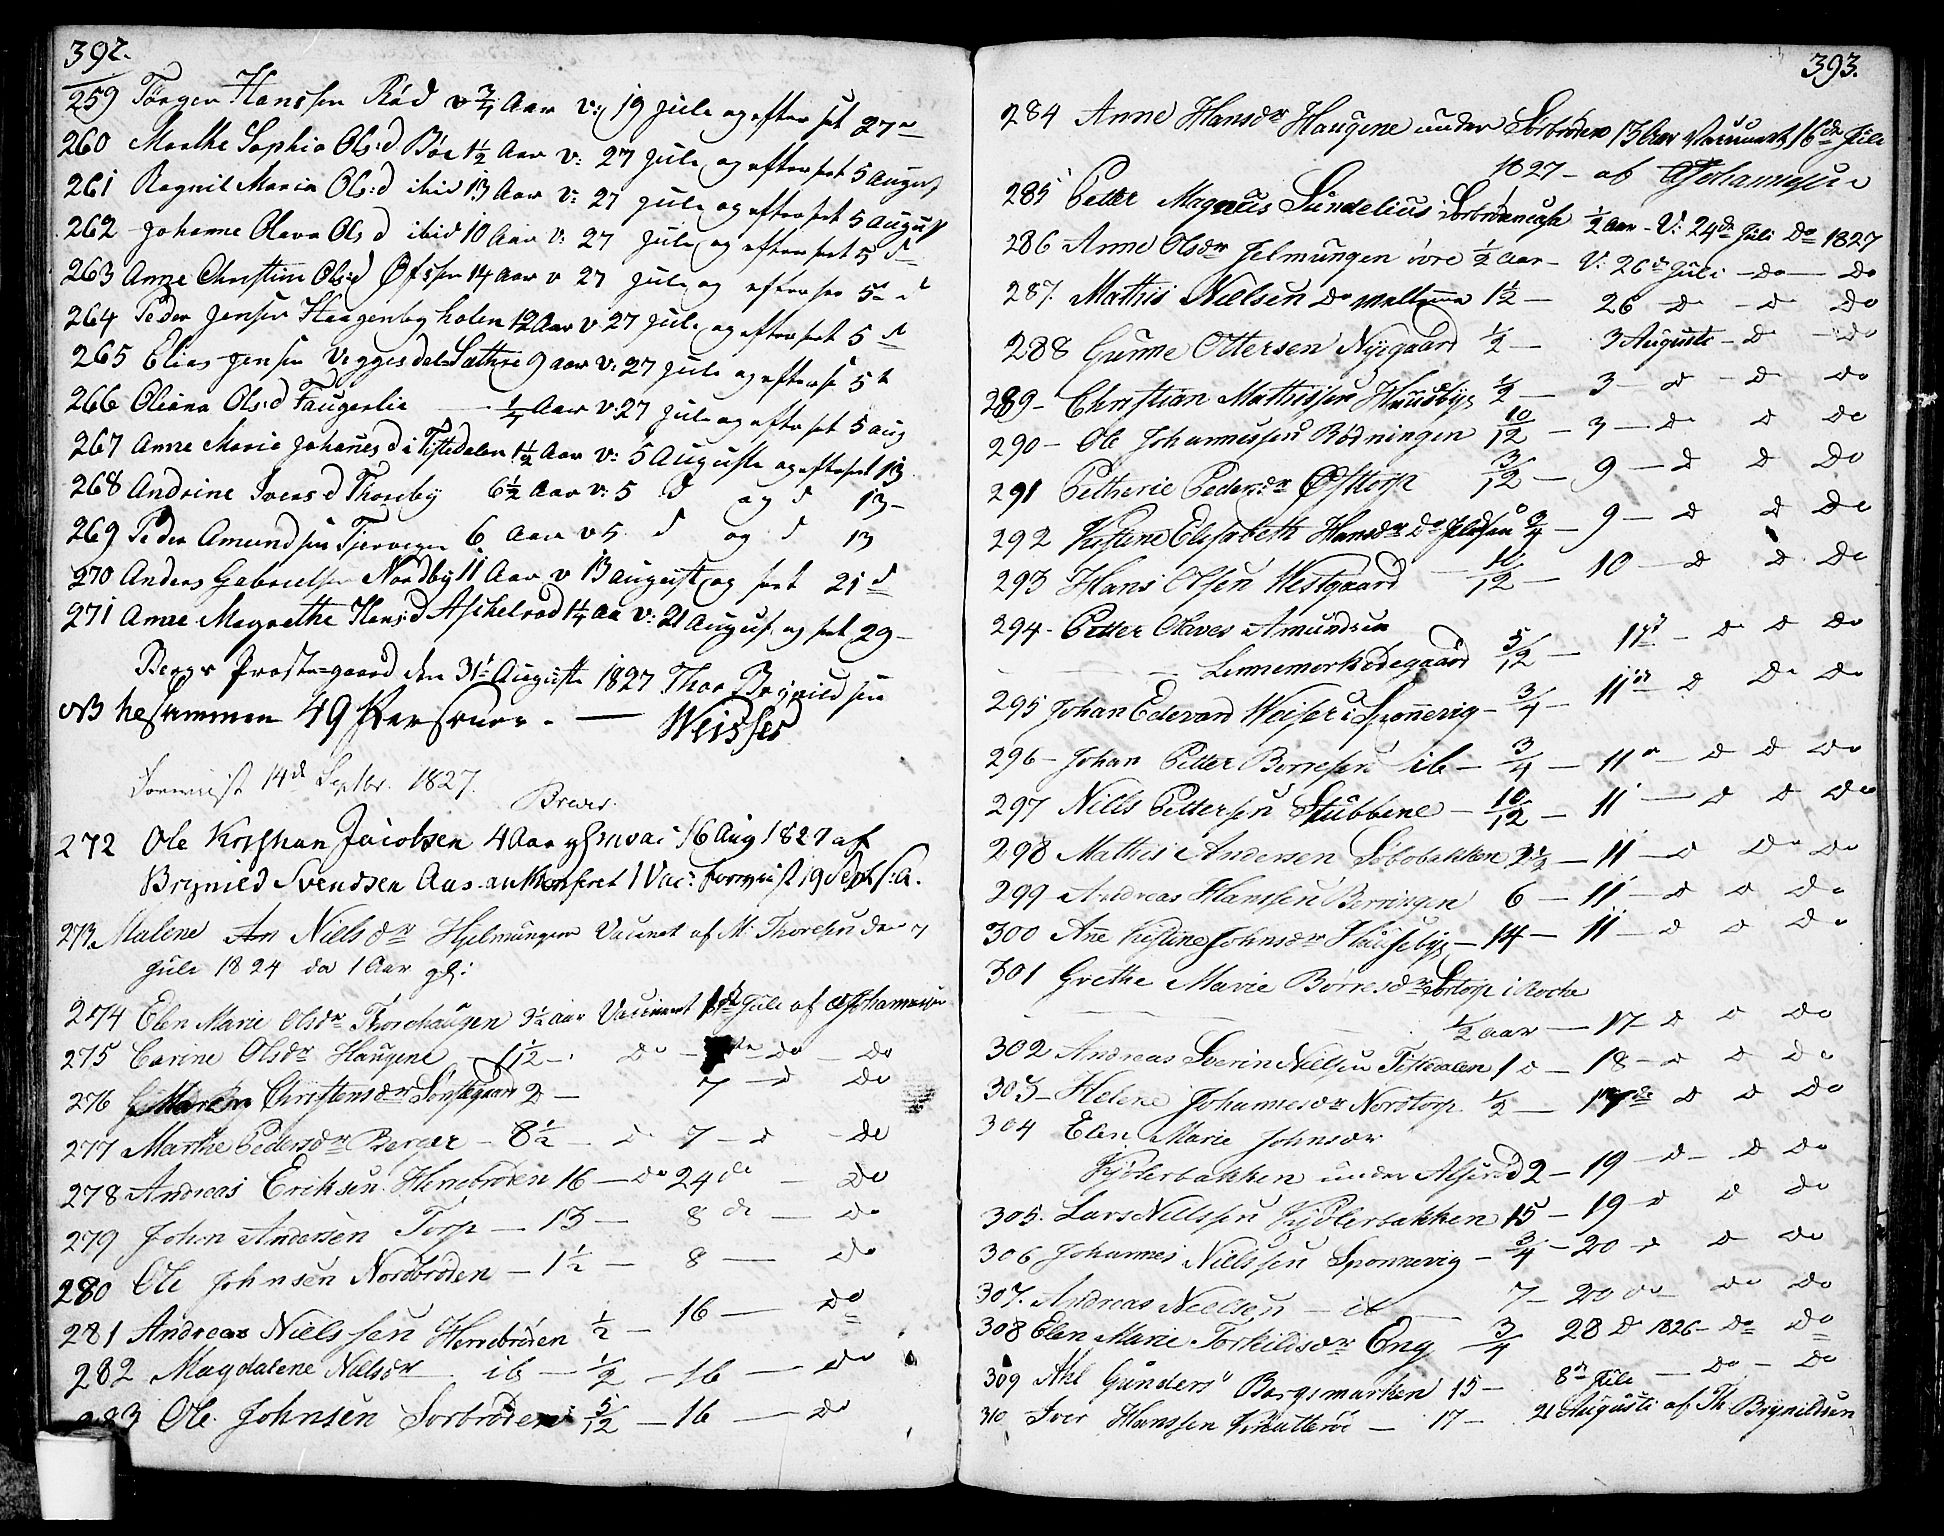 392.
259 Jörgen Hanssen Röd v 3/4 Aar v: 19 Juli og efterset 27 d
260 Marthe Sophia Ols:d Böe 1 1/2 Aar v: 27 Juli og efterset 5 August
261 Ragnil Maria Ols:d ibid 13 Aar v: 27 Juli og efterset 5 August
262 Johanne Olava Ols d ibid 10 Aar v: 27 Juli og efterset 5 d
263 Anne Christine Ols:d 14 Aar v 27 Juli og efterset 5 d
264 Peder Jensen Haagenbyholen 12 Aar v: 27 Juli og efterset 5 d
265 Elias Jensen Sæthre 9 aar v: 27 Juli og efterset 5 d
266 Oliana Ols:d Faugerlie 1/4 Aar v: 27 Juli og efterset 5 aug
267 Anne Maria Johanes d i Tistedalen 1 1/2 Aar v: 5 Auguste og efterset 13
268 Andrine Ivers d Thoreby 6 1/2 Aar v: 5 d og d 13-
269 Peder Amundsen 6 Aar v 5 d og d 13
270 Anders Gabrielsen Nordby 11 Aar v 13 august og set 21 d
271 Anne Magrethe Hans:d Askelrød 1 1/4 Aa v: 21 August og set 29-
Bergs Præstegaard den 31t Auguste 1827 Thor Brynildsen
NB tilsammen 49 Personer. — Weisser
Foreviist 14d Septbr. 1827.
272 Ole Kristian Jacobsen 4 Aar gl vac: 16 Aug 1827 af
Brynild Svendsen Aas foreviist 19 Sept s:a.
273 Malene Niels dr Hjelmungen Vacinert af M: Thoresen den 7
Juli 1824 da 1 Aar gl:
274 Elen Marie Olsdr Thorshaugen 3 1/2 aar Vacineret Juli af Johannesen
275 Carine Olsdr Haugene - 1 1/2 - do - do - do
276 Maren Christensdr 2 - 7 - d do
277 Marthe Pedersdr Berger - 8 1/2 - d 7 - d - do
278 Andreas Eriksen Herrebröden 16 - do 24 do - do
279 John Andersen Torp - 13 - 8 do - do
280 Ole Johnsen Nordbröden - 1 1/2 - 8 - do
281 Andreas Nielssen Herrebröden 1/2 - 16 - do
282 Magdalene Nilsdr ib - 1/2 - 16 - do
283 Ole Johnsen Sorbröden 5/12 - 16 - do
393.
284 Anne Hansdr Haugene under Sörbröden 13 Aar Vacineret 16de Juli
1827 - af Johannesen
285 Petter Magnus Sundelius 1/2 Aar - V: 24de Juli do 1827
286 Anne Olsdr Jelmungen övre 1/2 aar - V: 26de Juli - do - do
287. Mathis Nielsen do 1 1/2 - 26 d - d do
288 Gunne Ottersen Nygaard 1/2 - 3 Augusti - d - do
289 - Christian Mathissen Huusbye 1/2 - 3 - d - d - do
290 - Ole Johannessen Rödningen 10/12 - 3 - d d do
291 Petherie Pedersdr Östtorp 3/12 - 9 - d d do
292 Kirstine Elisabeth Hansdr do 3/4 - 9 - d d do
293 Hans Olsen Westgaard 10/12 - 10 - d d do
294 - Petter Olaves Amundsen
Lennemorködegaard 5/12 - 11d - d d do
295 Johan Edevard Weiser i Sponevig - 3/4 - 11de d do do
296 - Johan Petter Borresen ib - 3/4 - 11 - d d do
297 Nills Pettersen Stubbene - 10/12 - 11 - d d do
298 Mathis Andersen Löbobakken 1 1/2 - 11 - d do do
299 Andreas Hanssen Berringen 6 - 11 - d d do
300 Ane Kistine Johnsdr Huusebye - 14 - 11 - d d do
301 Grethe Marie Börresdr Sörtorp i Rocke
1/2 aar - 17 d d do
302 Andreas Severin Nielsen Tistedalen 10 - 18 - d d do
303 - Helene Johannesdr Nordtorp 1/2 - 17de d d do
304 Elen Marie Johnsdr
Kjölerbakken under 2 - 19 - d - d do
305. Lars Nillssen Kjölerbakken 15 - 19 - d d do
306 Johannes Nielssen Sponnevig - 3/4 - 20 - d d do
307. Andreas Nielsen - ib - 7 - 20 do - do do
308 Elen Marie Torkildsdr Eng 3/4 28 d 1826 - do do
309 Gunders Bergsmarken 15 - 8de Juli - do - do
310 Iver Hanssen - 17 - 21 Augusti af Th: Brynildsen